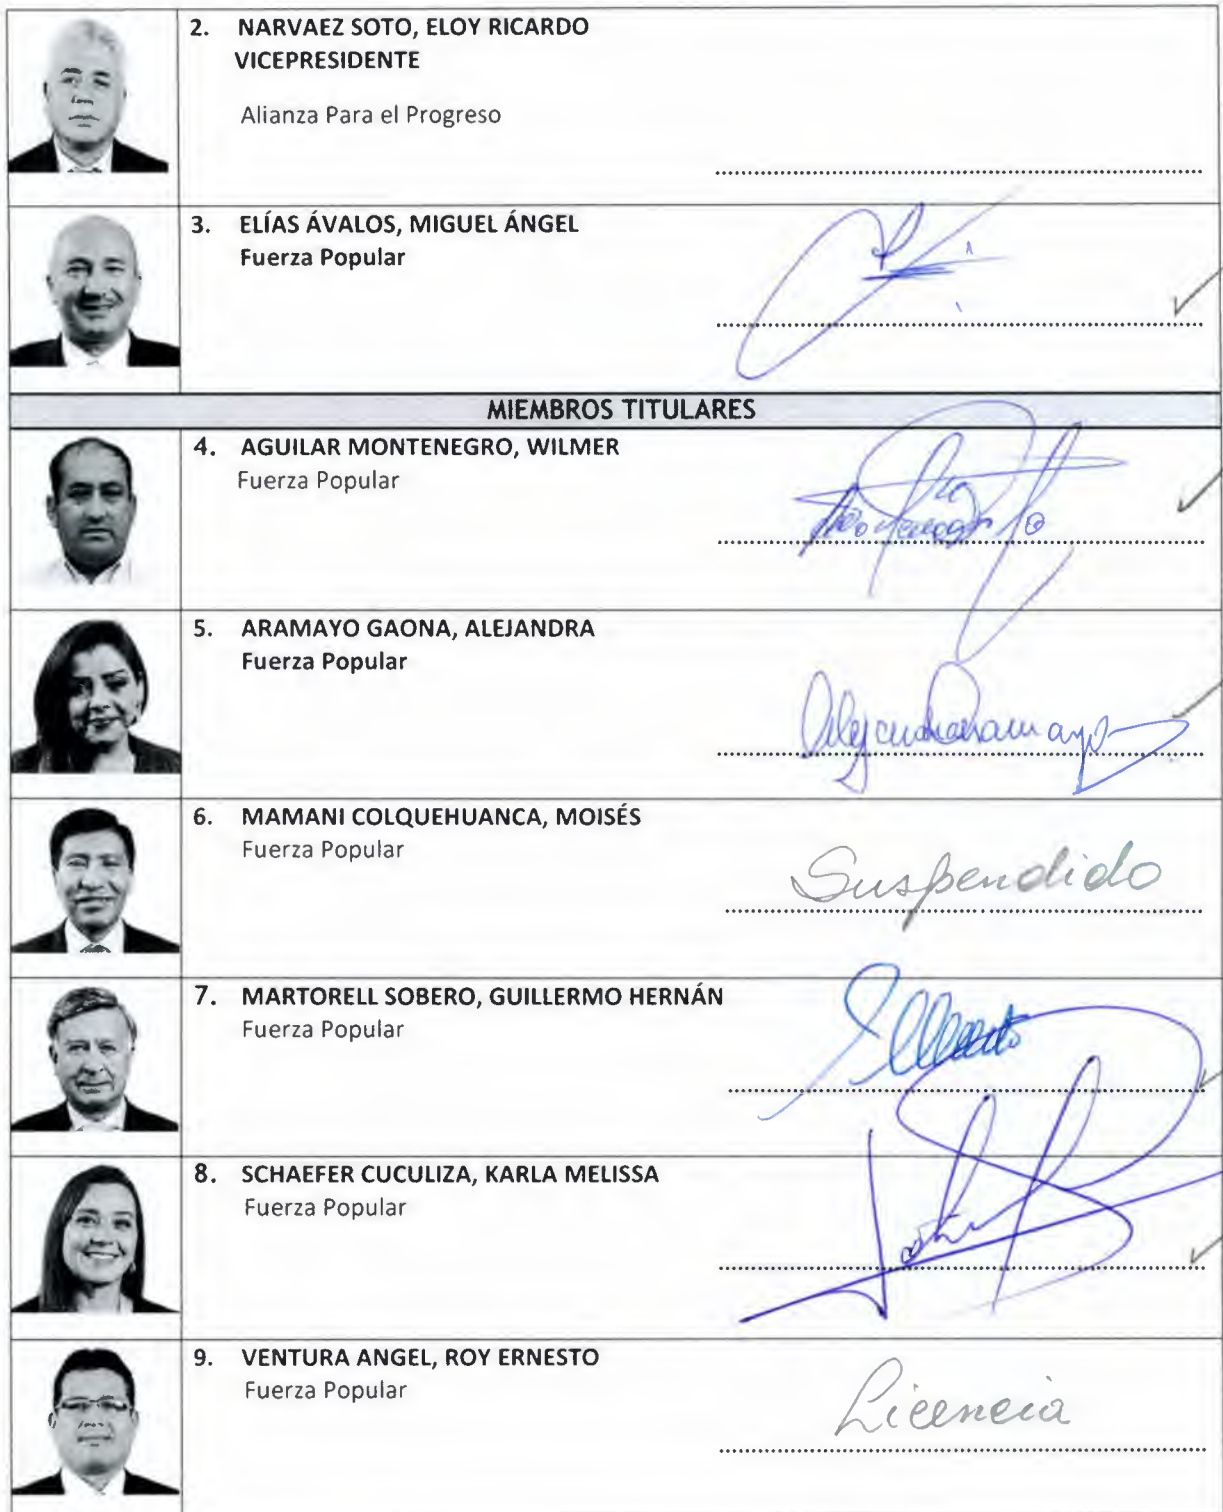 2. NARVAEZ SOTO, ELOY RICARDO
VICEPRESIDENTE
Alianza Para el Progreso
3. ELÍAS ÁVALOS, MIGUEL ÁNGEL
Fuerza Popular
MIEMBROS TITULARES
4. AGUILAR MONTENEGRO, WILMER
Fuerza Popular
5. ARAMAYO GAONA, ALEJANDRA
Fuerza Popular
6. MAMANI COLQUEHUANCA, MOISÉS
Fuerza Popular
Suspendido
7. MARTORELL SOBERO, GUILLERMO HERNÁN
Fuerza Popular
8. SCHAEFER CUCULIZA, KARLA MELISSA
Fuerza Popular
9. VENTURA ANGEL, ROY ERNESTO
Fuerza Popular
Licencia